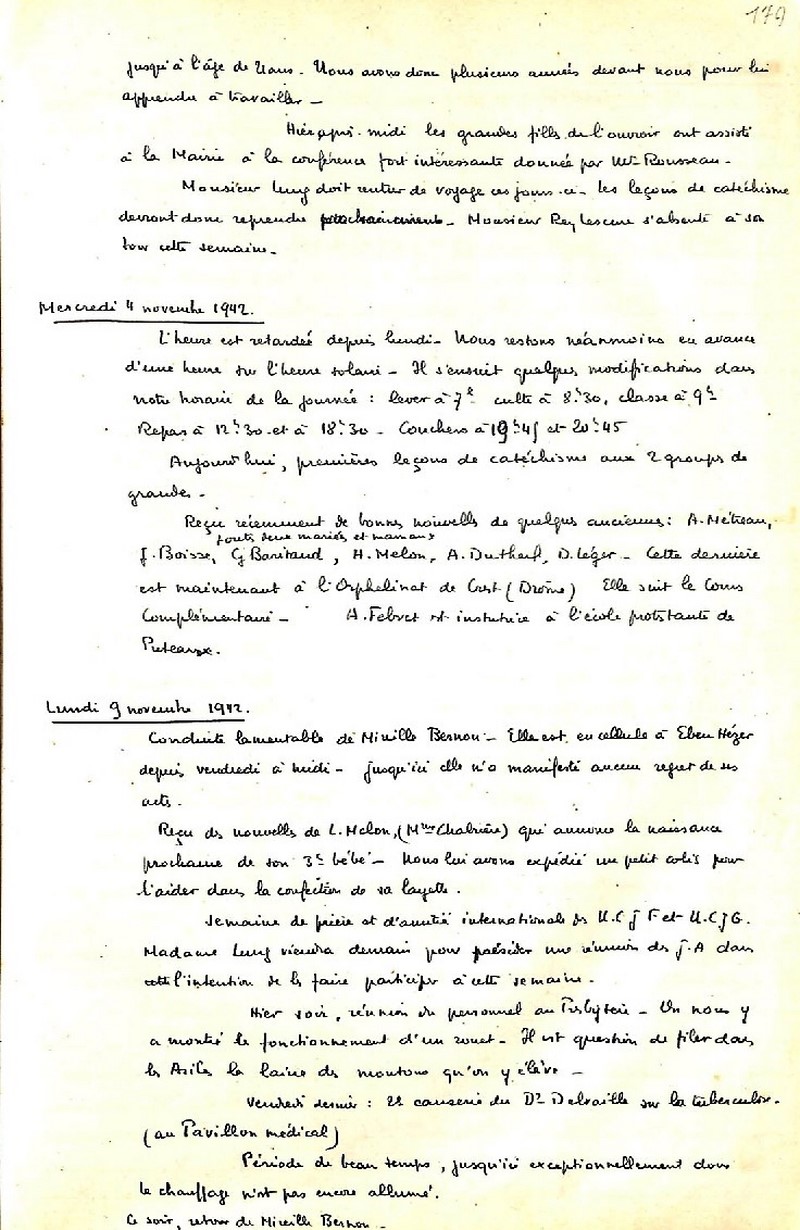 179
jusqu'à l'âge de ans. Nous avons donc plusieurs années devant nous pour lui
apprendre à travailler _
Hier après-midi les grandes filles de l'ouvroir ont assisté
à la Mairie à la conférence fort intéressante donnée par Mr Rousseau _
Monsieur Lung doit rentrer de voyage ces jours-ci _ les leçons de catéchisme
devront donc reprendre prochainement _ Monsieur Rey Lescure s'absente à son
tour cette semaine _
Mercredi 4 novembre 1942.
L'heure est retardée depuis lundi _ Nous restons néanmoins en avance
d'une heure sur l'heure solaire _ Il s'ensuit quelques modifications dans
notre horaire de la journée : lever à 7h culte à 8h30, classe à 9h
Repas à 12h30 et à 18h30 _ Couchers à 19h45 et 20h45
Aujourd'hui, premières leçons de catéchisme aux 2 groupes de
grandes _
Reçu récemment de bonnes nouvelles de quelques anciennes : A. Métreau,
toutes deux mariées et mamans
J. Boisse, G. Baritaud, H. Melon, A. Dutheil, D. Léger _ Cette dernière
est maintenant à l'Orphelinat de Crest (Drôme) Elle suit le Cours
Complémentaire _ A. Febvet est institutrice à l'école protestante de
Puteaux.
Lundi 9 novembre 1942.
Conduite lamentable de Mireille Bernon _ Elle est en cellule à Eben Hézer
depuis vendredi à midi _ jusqu'ici elle n'a manifesté aucun regret de ses
actes.
Reçu des nouvelles de L. Melon, (Mme Chabrière) qui annonce la naissance
prochaine de son 3e bébé _ Nous lui avons expédié un petit colis pour
l'aider dans la confection de sa layette.
Semaine de prière et d'amitié internationale des U.C.J.F et U.C.J.G.
Madame Lung viendra demain pour présider une réunion des J.A dans
cette l'intention de les faire participer à cette semaine.
Hier soir, réunion du personnel au Presbytère _ On nous y
a montré le fonctionnement d'un rouet _ Il est question de filer dans
les Asiles la laine des moutons qu'on y élève _
Vendredi dernier : 2e causerie du Dr Delvaille sur la tuberculose.
(au Pavillon médical)
Période de beau temps, jusqu'ici exceptionnellement doux
le chauffage n'est pas encore allumé.
Ce soir, retour de Mireille Bernon _